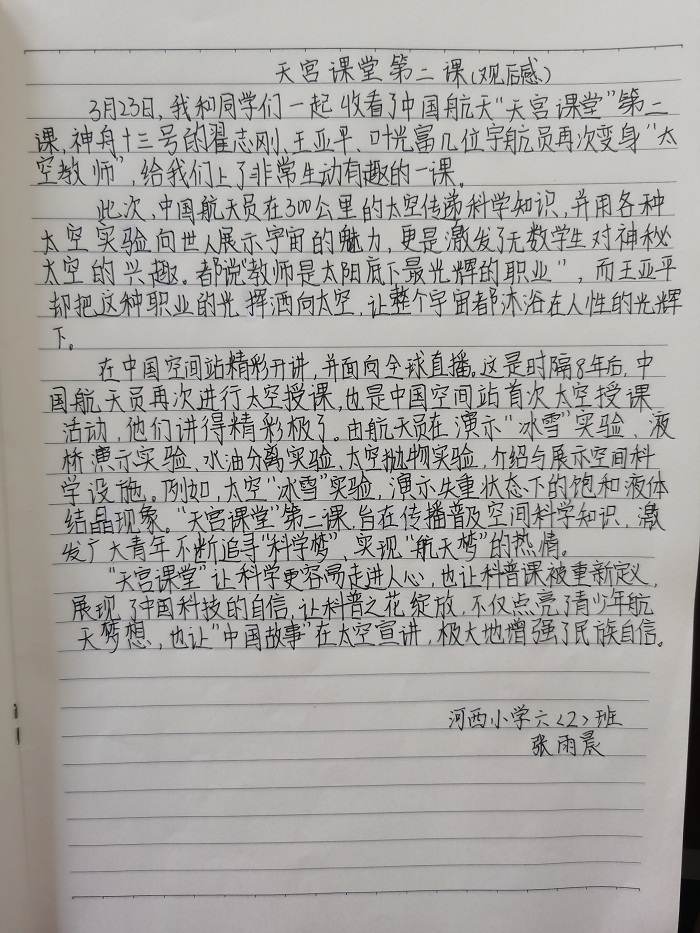 天宫课堂第二课(观后感)
3月23日,我和同学们一起收看了中国航天"天宫课堂"第二
课,神舟十三号的翟志刚、王亚平、叶光富几位宇航员再次变身"太
空教师",给我们上了非常生动有趣的一课。
此次,中国航天员在300公里的太空传递科学知识,并用各种
太空实验向世人展示宇宙的魅力,更是激发了无数学生对神秘
太空的兴趣。都说"教师是太阳底下最光辉的职业",而王亚平
却把这种职业的光挥洒向太空,让整个宇宙都沐浴在人性的光辉
下。
在中国空间站精彩开讲,并面向全球直播。这是时隔8年后,中
国航天员再次进行太空授课,也是中国空间站首次太空授课
活动,他们讲得精彩极了。由航天员在演示"冰雪"实验、液
桥演示实验、水油分离实验、太空抛物实验,介绍与展示空间科
学设施。例如,太空"冰雪"实验,演示失重状态下的饱和液体
结晶现象。"天宫课堂"第二课,旨在传播普及空间科学知识,激
发广大青年不断追寻"科学梦",实现"航天梦"的热情。
"天宫课堂"让科学更容易走进人心,也让科普课被重新定义,
展现了中国科技的自信,让科普之花绽放,不仅点亮了青少年航
天梦想,也让"中国故事"在太空宣讲,极大地增强了民族自信。
河西小学六〈2〉班
张雨晨